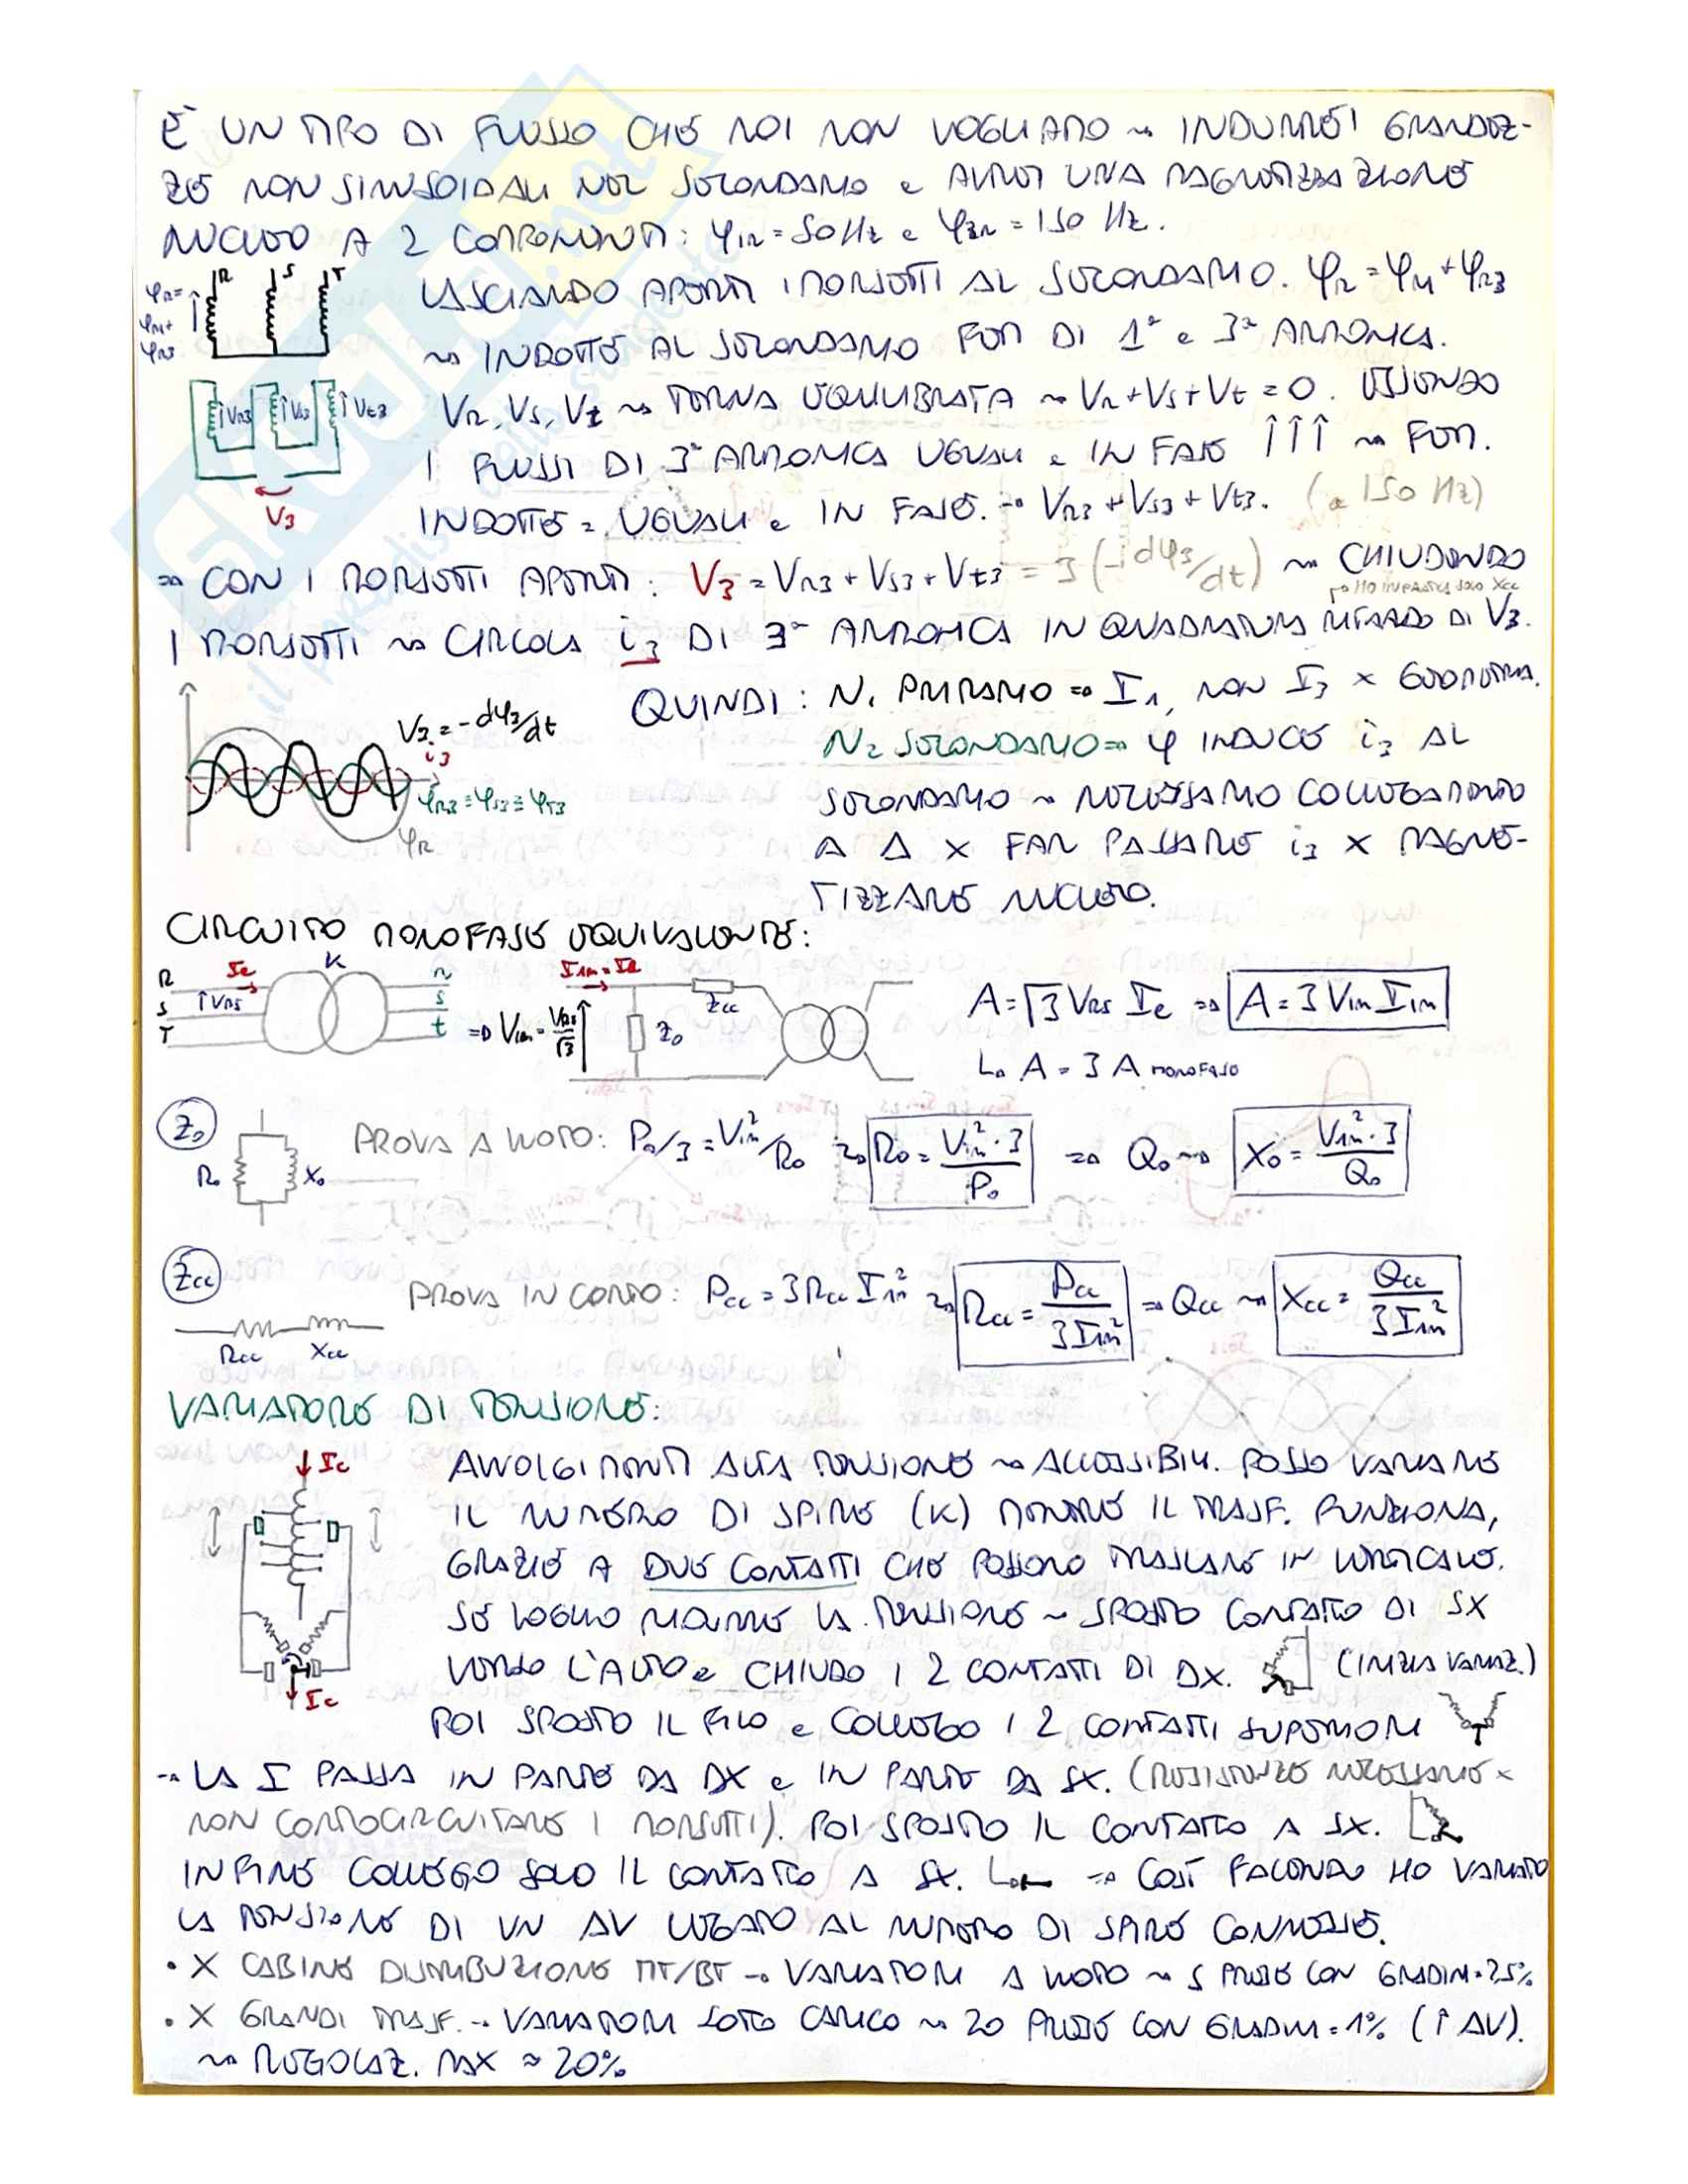 È UN TIPO DI FLUSSO CHE NOI NON VOGLIAMO ⇝ INDURRE'I GRANDEZ-
ZE NON SINUSOIDALI NEL SECONDARIO e AVREI UNA MAGNETIZZAZIONE
NUCLEO A 2 COMPONENTI: φ1R = 50 Hz e φ3R = 150 Hz.
R S T
φR = φR1 + φR3
LASCIANDO APERTI I MORSETTI AL SECONDARIO. φR = φR1 + φR3
⇝ INDOTTE AL SECONDARIO FEM DI 1ª e 3ª ARMONICA.
↑VR3 ↑VS3 ↑Vt3
VR, VS, Vt ⇝ TERNA EQUILIBRATA ⇝ VR + VS + Vt = 0. ESSENDO
I FLUSSI DI 3ª ARMONICA UGUALI e IN FASE ↑↑↑ ⇝ FEM.
V3
INDOTTE = UGUALI e IN FASE. → VR3 + VS3 + Vt3. (a 150 Hz)
⇒ CON I MORSETTI APERTI: V3 = VR3 + VS3 + Vt3 = 3 (-i dφ3/dt) ⇝ CHIUDENDO
HO IMPEDENZA SOLO Xcc
I MORSETTI ⇝ CIRCOLA i3 DI 3ª ARMONICA IN QUADRATURA RITARDO DI V3.
QUINDI: N1 PRIMARIO ⇒ I1, NON I3 x GEOMETRIA.
V3 = -dφ3/dt
i3
φR3 ≡ φS3 ≡ φT3
φR
N2 SECONDARIO ⇒ φ INDUCE i3 AL
SECONDARIO ⇝ NECESSARIO COLLEGAMENTO
A Δ x FAR PASSARE i3 x MAGNE-
TIZZARE NUCLEO.
CIRCUITO MONOFASE EQUIVALENTE:
R S T Ie ↑VRS K r s t ⇒ V1m = VRS/√3 I1m = Ie Z0 Zcc
A = √3 VRS Ie ⇒ A = 3 V1m I1m
↳ A = 3 A MONOFASE
Z0 R0 X0 PROVA A VUOTO: P0/3 = V1m²/R0 ⇝ R0 = V1m²·3/P0 ⇒ Q0 ⇝ X0 = V1m²·3/Q0
Zcc Rcc Xcc PROVA IN CORTO: Pcc = 3 Rcc I1m² ⇝ Rcc = Pcc/3I1m² ⇒ Qcc ⇝ Xcc = Qcc/3I1m²
VARIATORE DI TENSIONE:
↓Ic
AVVOLGIMENTI ALTA TENSIONE ⇝ ACCESSIBILI. POSSO VARIARE
IL NUMERO DI SPIRE (K) MENTRE IL TRASF. FUNZIONA,
GRAZIE A DUE CONTATTI CHE POSSONO TRASLARE IN VERTICALE.
SE VOGLIO RIDURRE LA TENSIONE ⇝ SPOSTO CONTATTO DI SX
VERSO L'ALTO e CHIUDO I 2 CONTATTI DI DX. (INIZIA VARIAZ.)
↓Ic
POI SPOSTO IL FILO e COLLEGO I 2 CONTATTI SUPERIORI
→ LA I PASSA IN PARTE DA DX e IN PARTE DA SX. (RESISTENZE NECESSARIE x
NON CORTOCIRCUITARE I MORSETTI). POI SPOSTO IL CONTATTO A SX.
INFINE COLLEGO SOLO IL CONTATTO A SX. ⇒ COSÌ FACENDO HO VARIATO
LA TENSIONE DI UN ΔV LEGATO AL NUMERO DI SPIRE CONNESSE.
• X CABINE DISTRIBUZIONE MT/BT → VARIATORI A VUOTO ⇝ 5 PRESE CON GRADINI = 2,5%
• X GRANDI TRASF. → VARIATORI SOTTO CARICO ⇝ 20 PRESE CON GRADINI = 1% (↑ΔV).
⇝ REGOLAZ. MAX ≈ 20%
SKUOLA.net
il paradiso dello studente